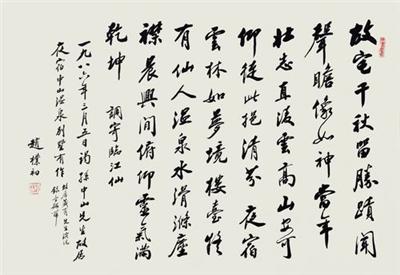 故宅千秋留勝蹟聞
聲瞻像如神當年
壯志直凌雲高山安可
仰從此挹清芬 夜宿
雲林如夢境樓臺疑
有仙人温泉水滑滌塵
襟晨興閒俯仰靈氣滿
乾坤 調寄臨江仙
一九八六年二月五日謁孫中山先生故居
夜宿中山温泉別墅有作
趙樸初